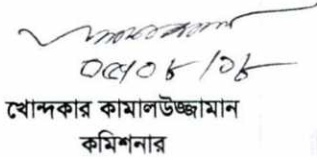 ০৫/০৮/১৮
খোন্দকার কামালউজ্জামান
কমিশনার